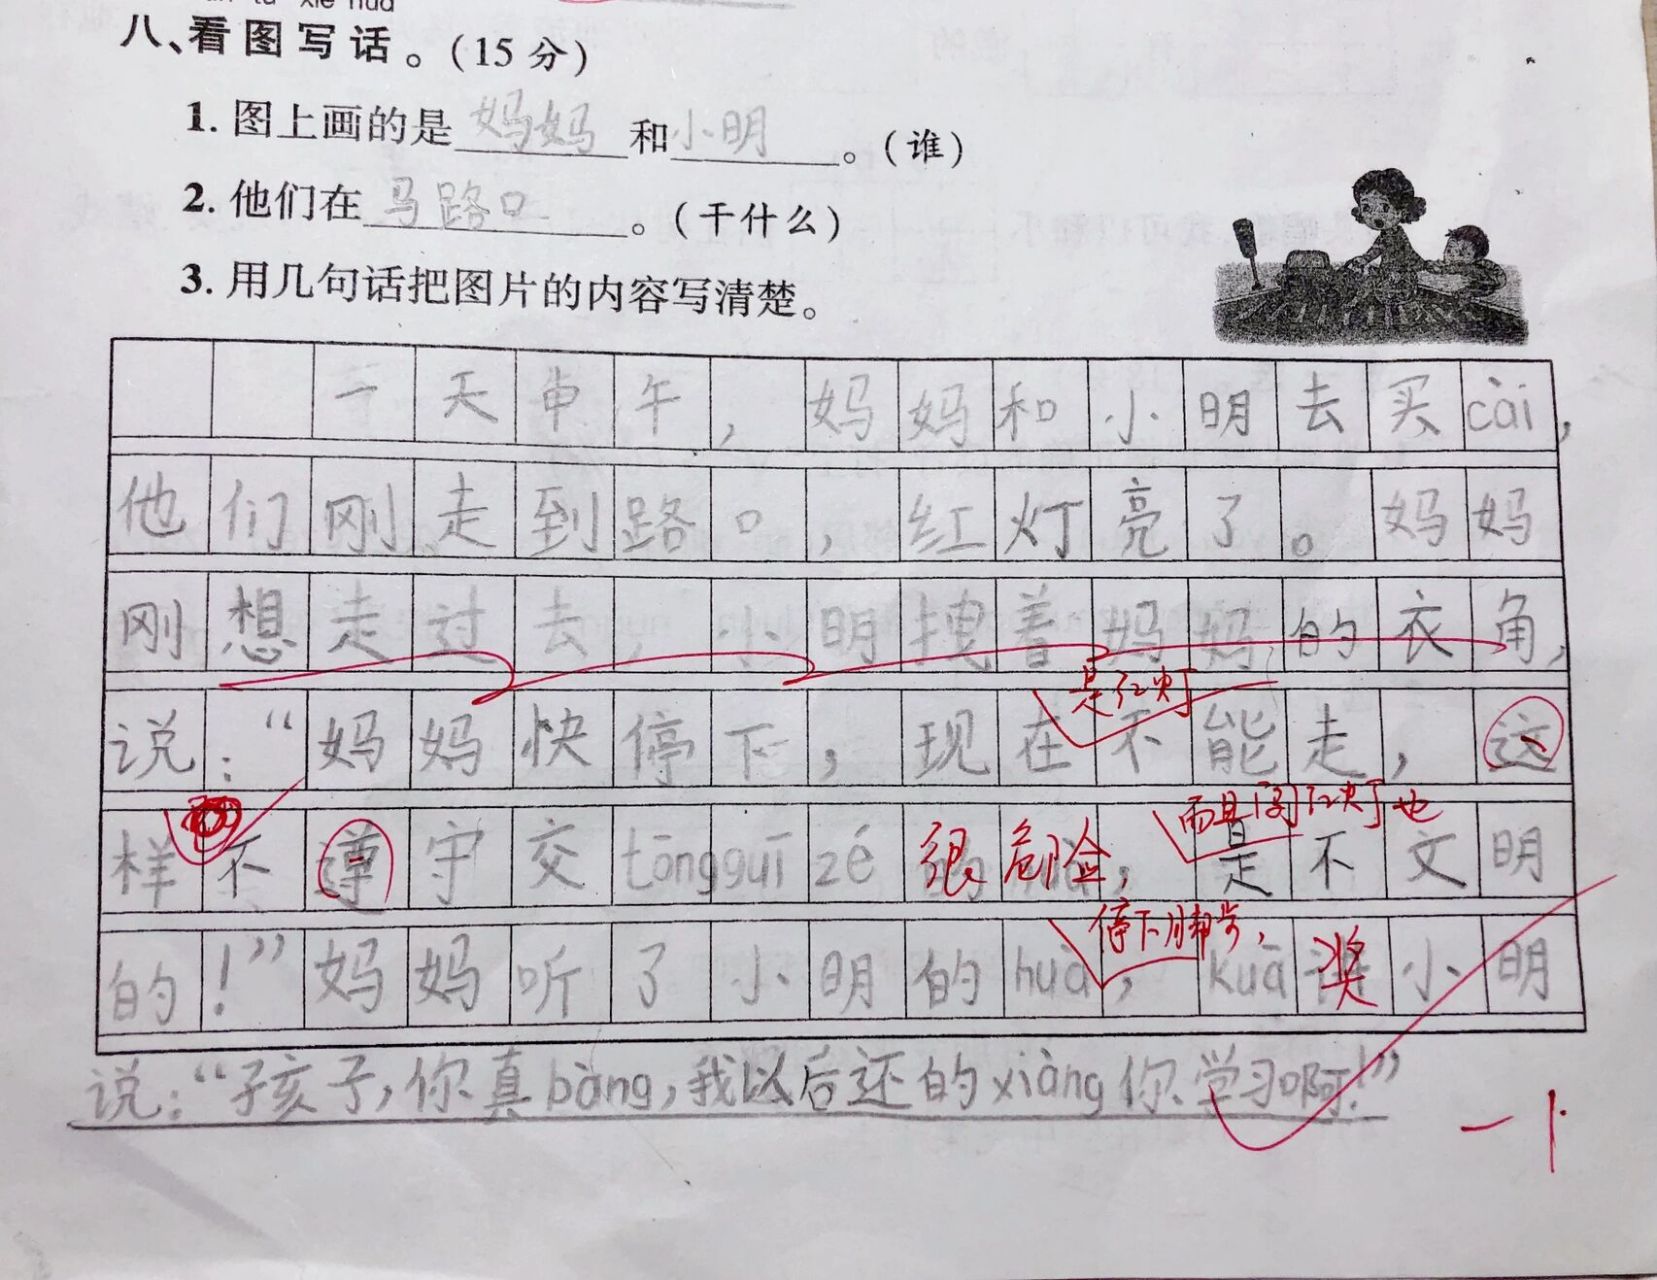 八、看图写话。(15分)
1. 图上画的是妈妈和小明。(谁)
2. 他们在马路口。(干什么)
3. 用几句话把图片的内容写清楚。
一天中午，妈妈和小明去买cài，
他们刚走到路口，红灯亮了。妈妈
刚想走过去，小明拽着妈妈的衣角，
是红灯
说：“妈妈快停下，现在不能走，这
而且闯红灯也
样不遵守交tōngguī zé 很危险，是不文明
停下脚步，
的！”妈妈听了小明的huà，kuā奖小明
说：“孩子，你真bàng，我以后还的xiàng你学习啊！”
-1